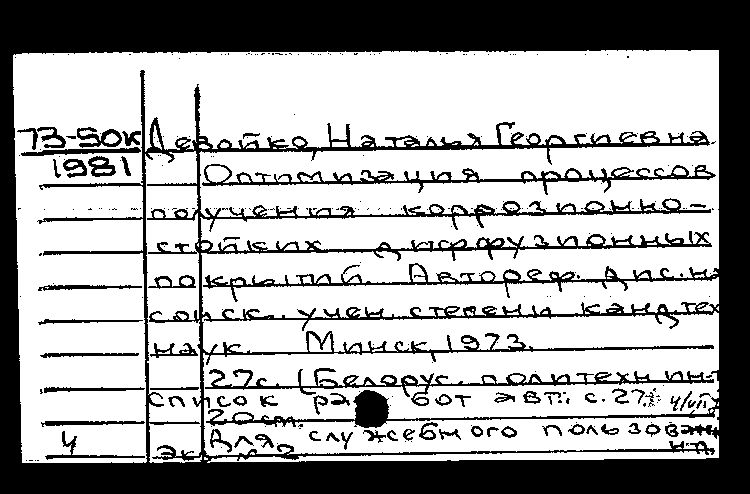 73-50к Девойко, Наталья Георгиевна
1981 Оптимизация процессов
получения коррозионно-
стойких диффузионных
покрытий. Автореф. дис. на
соиск. учен. степени канд. тех
наук. Минск, 1973.
27с. (Белорус. политехн. ин-т
Список работ авт.: с. 27
20 см.
4 Для служебного пользован
экз № 2 н.п.